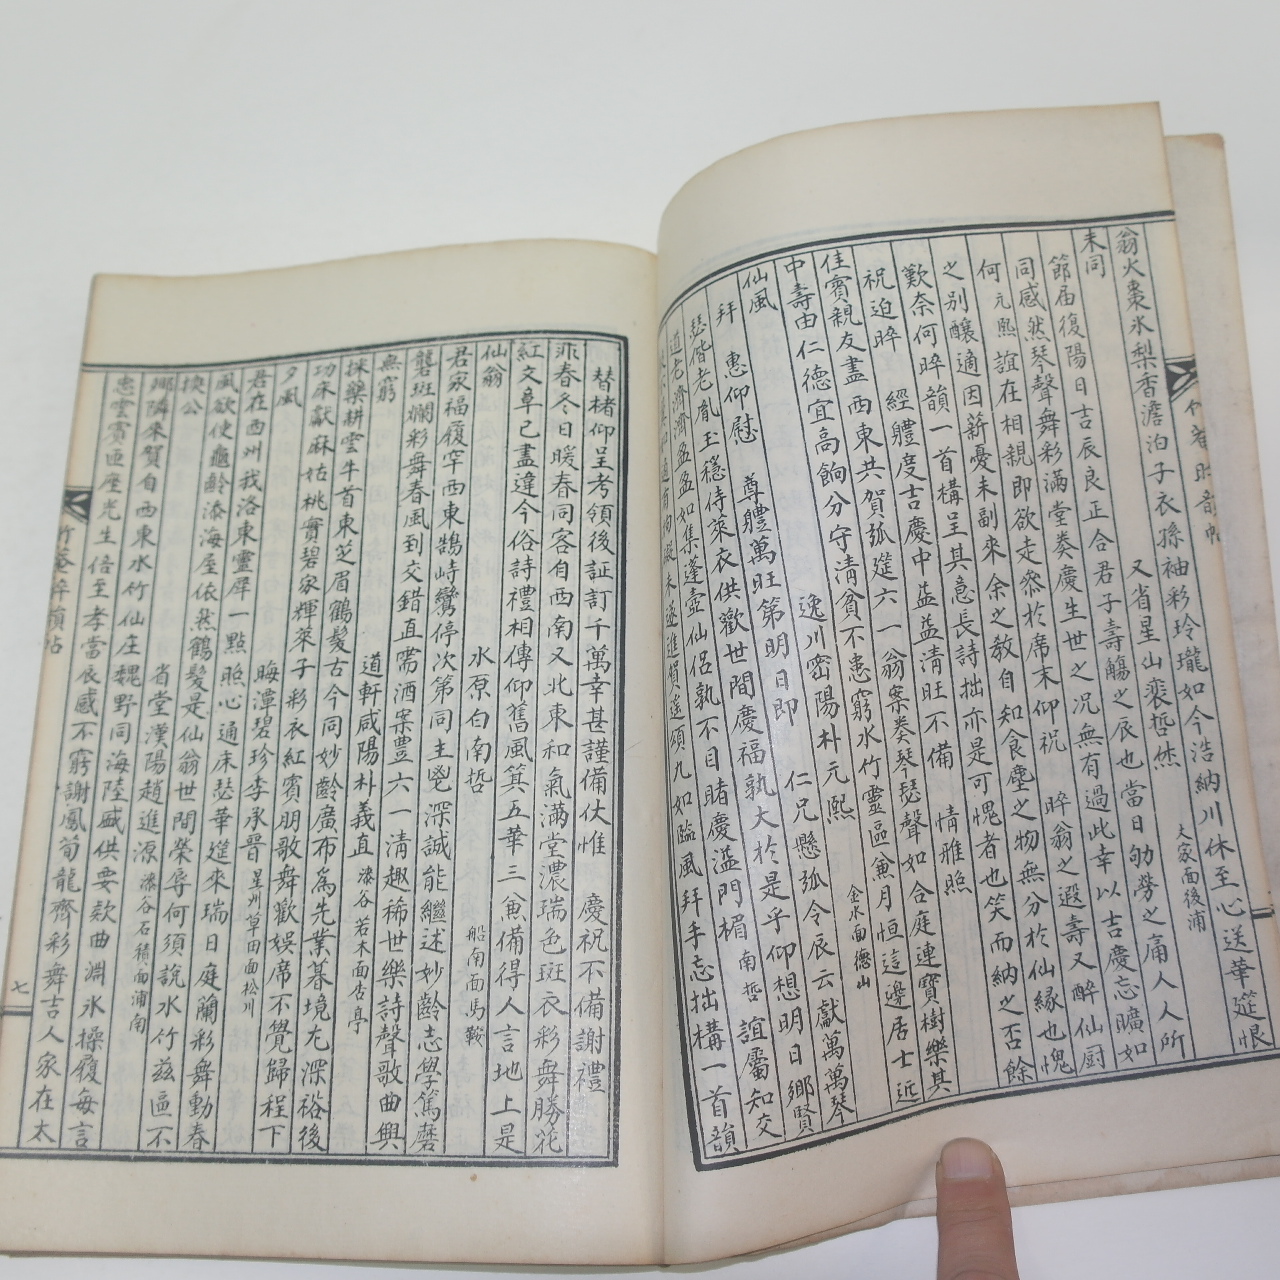 翁火棗氷梨香澹泊子衣孫袖彩玲瓏如今浩納川休至心送華筵恨
未同
又省星山裵哲然
大家面後浦
節届復陽日吉辰良正合君子壽觴之辰也當日劬勞之痛人人所
同感然琴聲舞彩滿堂奏慶生世之况無有過此幸以吉慶忘曠如
何元熙誼在相親即欲走叅於席末仰祝 晬翁之遐壽又醉仙厨
之别釀適因薪憂未副來余之教自知食塵之物無分於仙緣也愧
歎奈何晬韻一首構呈其急長詩拙亦是可愧者也笑而納之否餘
祝迫晬 經體度吉慶中益益淸旺不備 情雅照
佳賓親友盡西東共賀弧筵六一翁案奏琴瑟聲如合庭連寶樹樂其
中壽由仁德宜高餉分守淸貧不患窮水竹靈區兼月恒這邊居士近
仙風
逸川密陽朴元熙
金水面德山
拜 惠仰慰 尊體萬旺第明日即 仁兄懸弧令辰云獻萬萬琴
瑟偕老胤玉穩侍萊衣供歡世間慶福孰大於是乎仰想明日鄉賢
道老濟濟盈盈如集蓬壺仙侶孰不目睹慶溢門楣南哲誼屬知交
未遂進賀筵頌九如臨風拜手忘拙構一首韻
替楮仰呈考領後証訂千萬幸甚謹備伏惟 慶祝不備謝禮
非春冬日暖春同客自西南又北東和氣滿堂濃瑞色斑衣彩舞勝花
紅文章已盡違今俗詩禮相傳仰舊風箕五華三兼備得人言地上是
仙翁
水原白南哲
船南面馬鞍
君家福履罕西東鵠峙鸞停次第同主鬯深誠能繼述妙齡志學篤磨
礱斑斕彩舞春風到交錯直需酒案豊六一淸趣稀世樂詩聲歌曲興
無窮
道軒咸陽朴義直
漆谷若木面店亭
採藥耕雲牛首東芝眉鶴髮古今同妙齡廣布爲先業暮境尤深裕後
功床獻麻姑桃實碧家輝萊子彩衣紅賓朋歌舞歡娛席不覺歸程下
夕風
晦潭碧珍李承晉
星州草田面松川
君在西州我洛東靈犀一點照心通床瑟華筵來瑞日庭蘭彩舞動春
風欲使龜齡添海屋依然鶴髮是仙翁世間榮辱何須說水竹玆區不
換公
省堂漢陽趙進源
漆谷石積面浦南
鄉隣來賀自西東水竹仙庄魏野同海陸盛供要欵曲淵氷操履每言
忠雲賓匝座光生倍至孝當辰感不窮謝鳳荀龍齊彩舞吉人家在太
竹菴晬韻帖
七